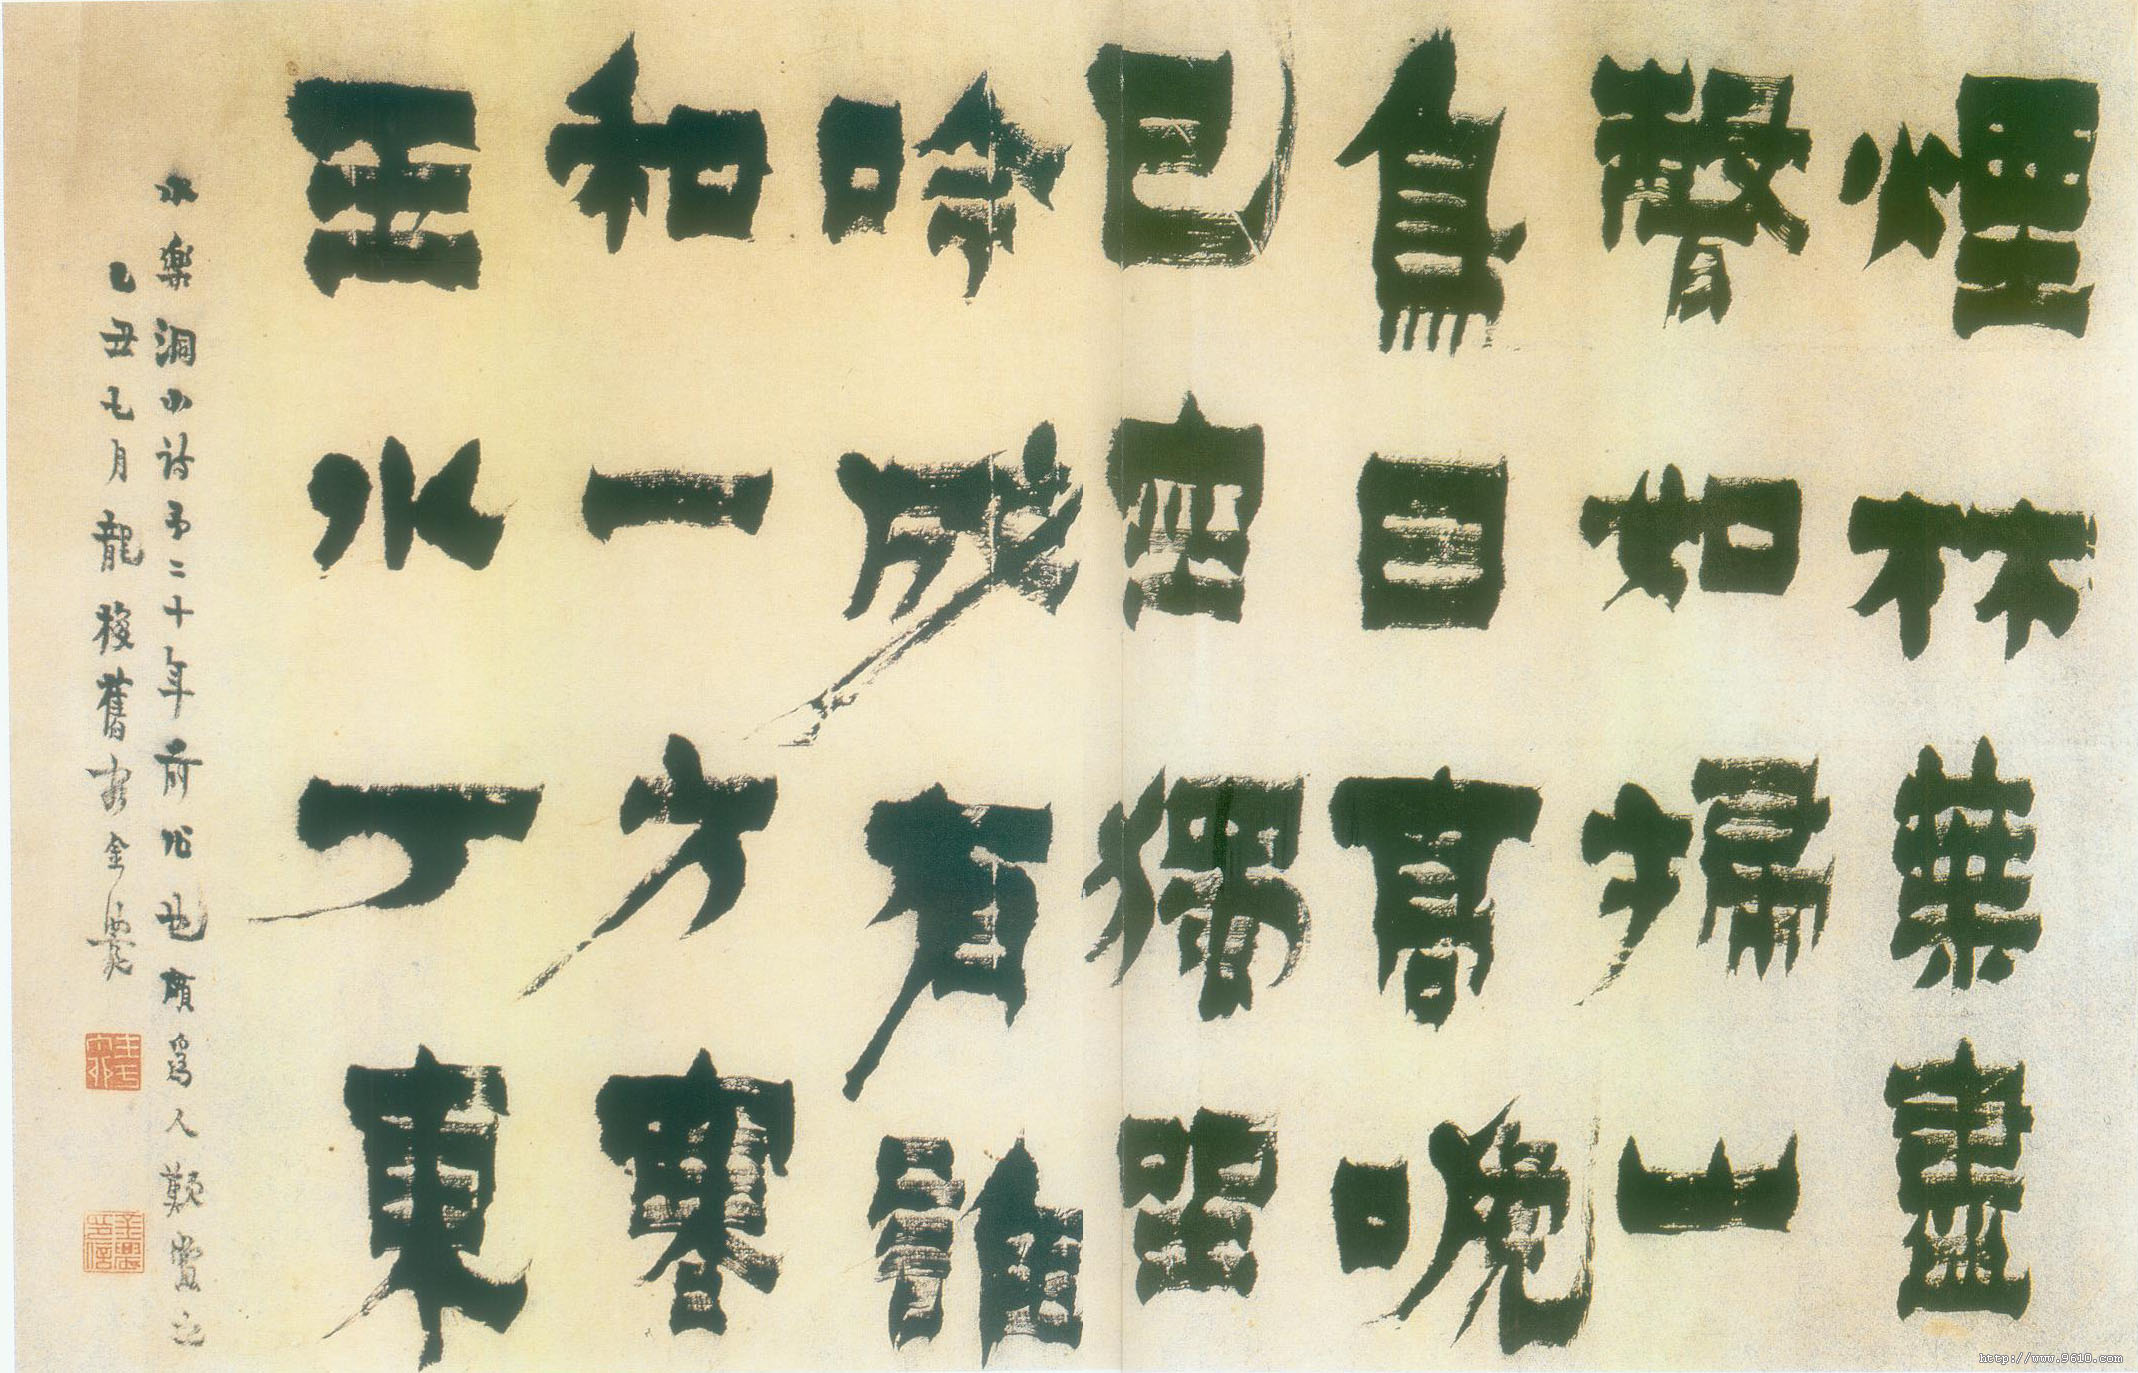 煙林葉盡
聲如掃山
鳥目高晚
已空獨坐
吟成有誰
和一方寒
玉水丁東
水樂洞小詩予二十年前作也頗為人歎賞之
乙丑七月龍梭舊客金農
http://www.9610.com